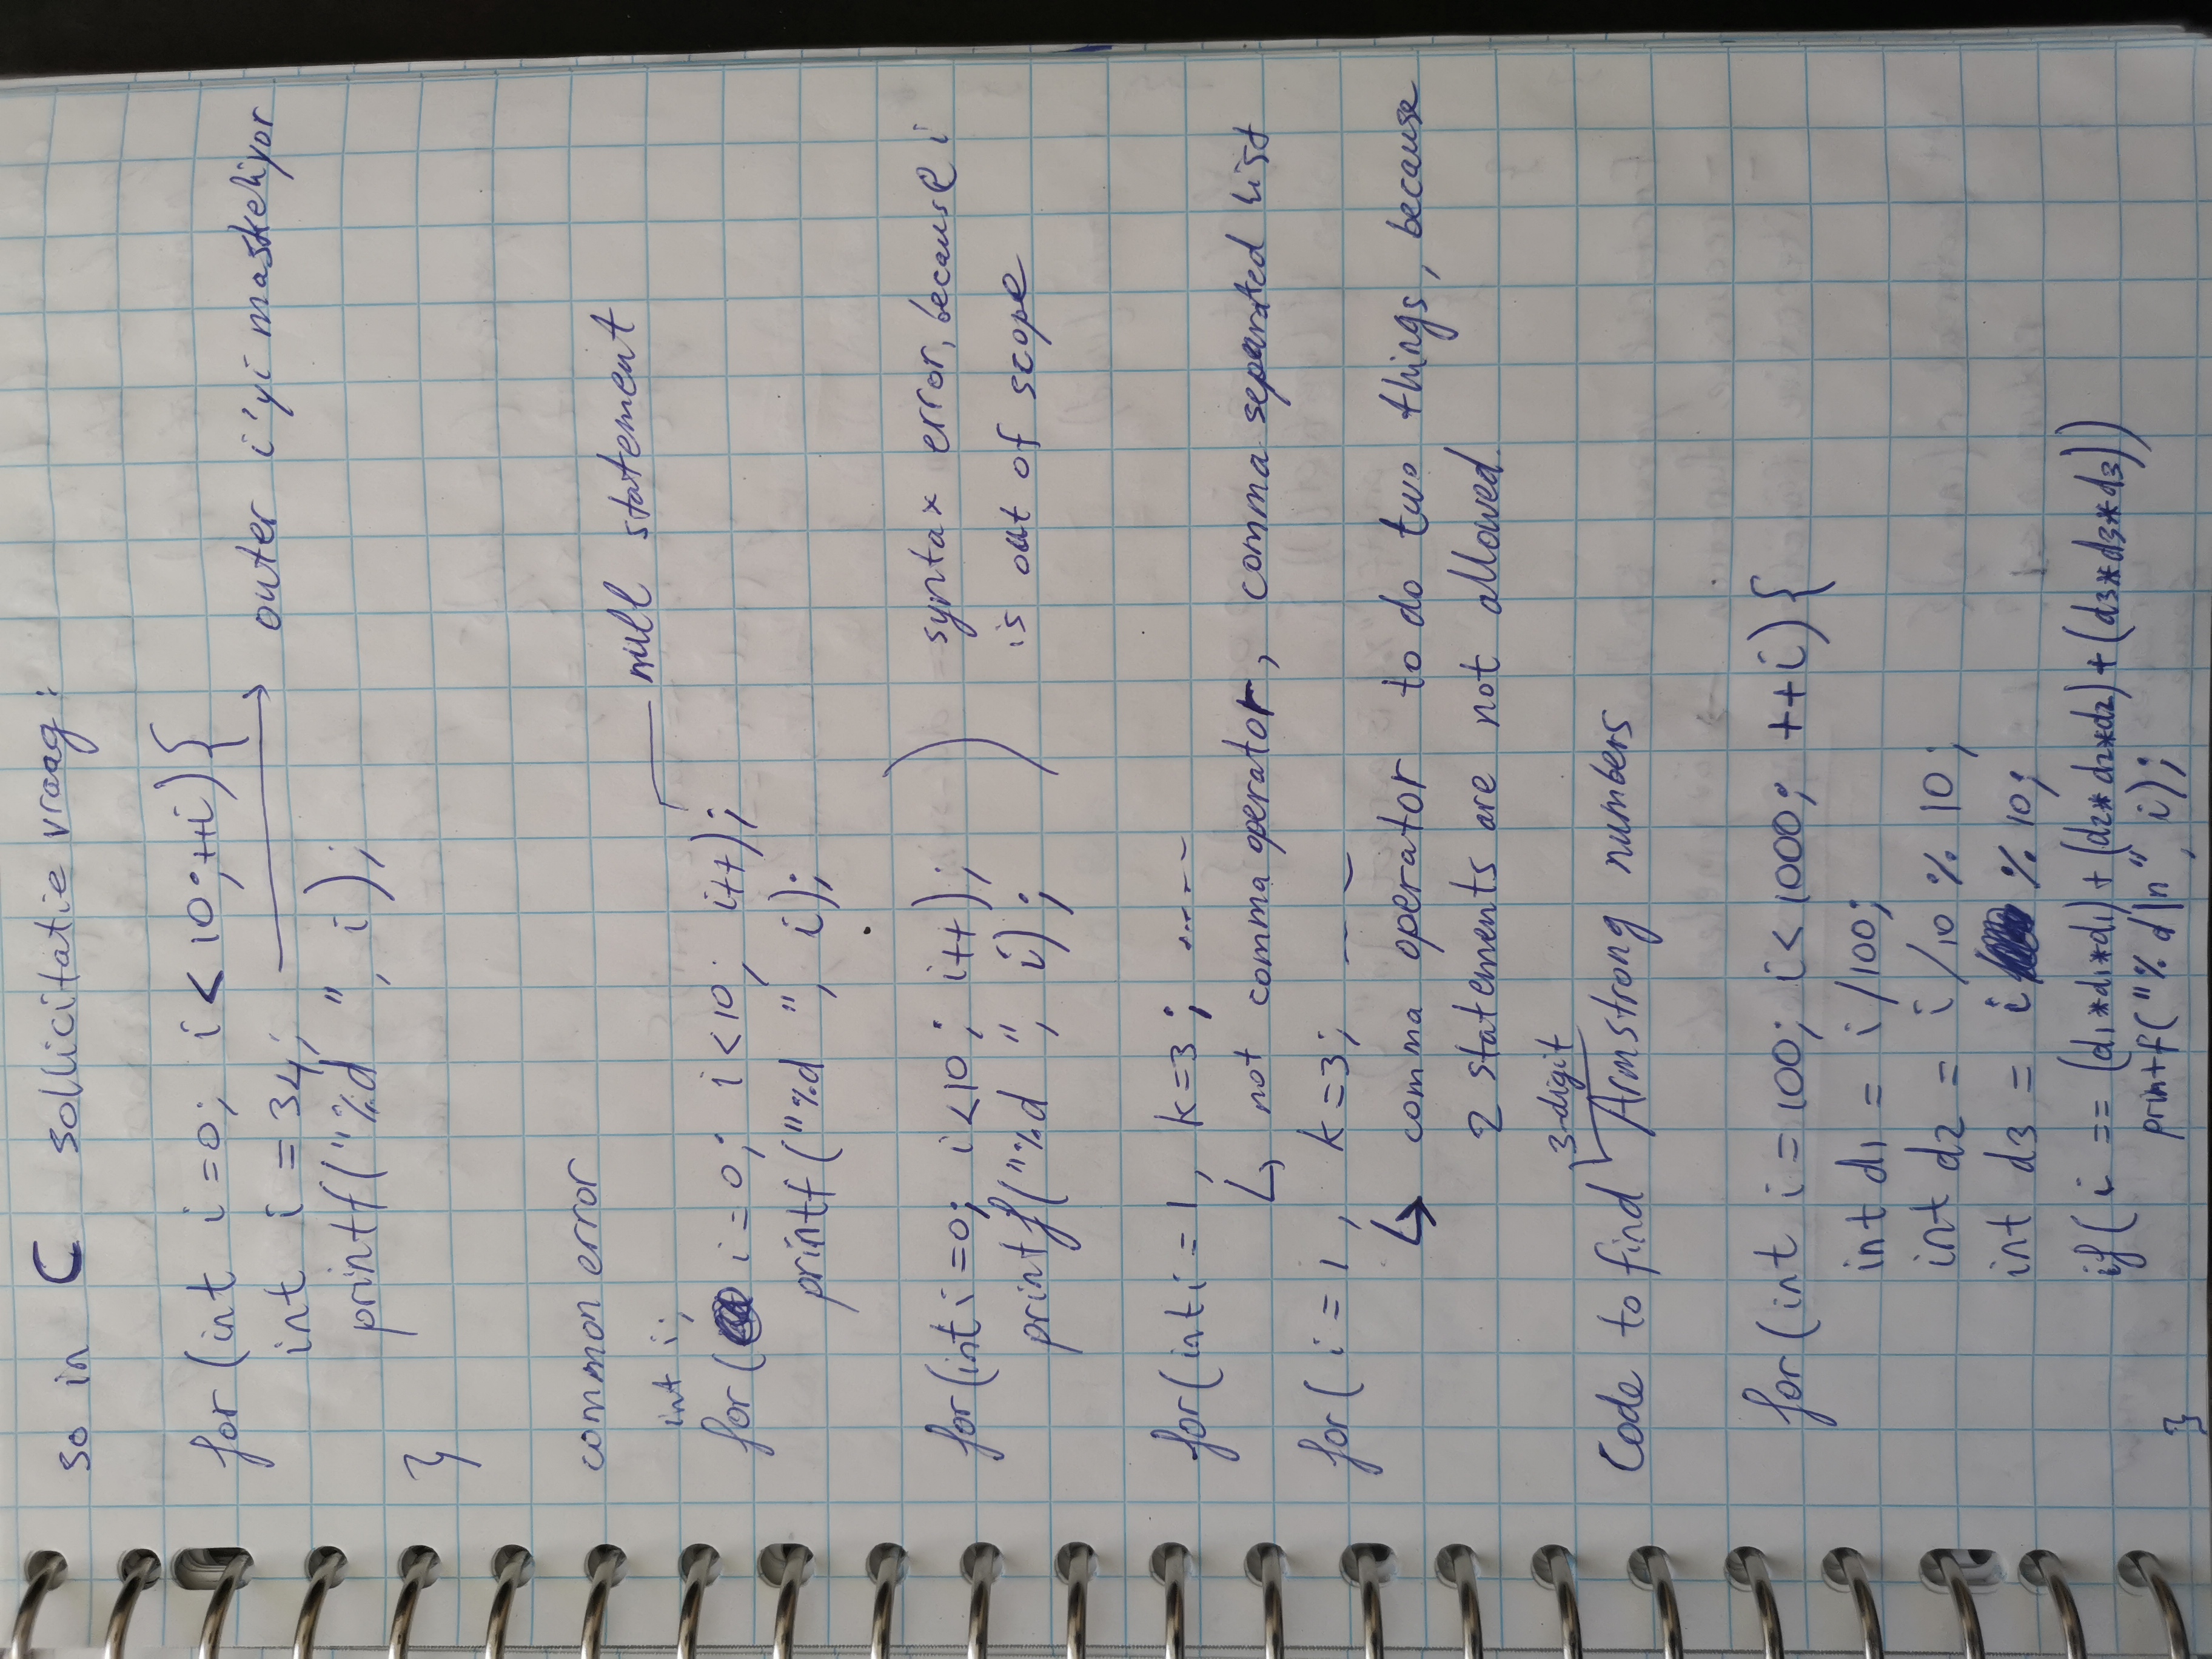 so in C sollicitatie vraag:
for (int i=0; i<10;++i){
int i = 34; → outer i'yi maskeliyor
printf("%d ", i);
}
common error
null statement
int i;
for ( i=0; i<10; i++);
printf("%d ", i);
for(int i=0; i<10; i++);
printf("%d ", i);
syntax error, because i
is out of scope
for(int i = 1, k=3; .....
↳ not comma operator, comma separated list
for( i = 1, k=3; — —
↳ comma operator to do two things, because
2 statements are not allowed.
3-digit
Code to find Armstrong numbers
for (int i = 100; i< 1000; ++i){
int d1 = i /100;
int d2 = i /10 % 10;
int d3 = i % 10;
if( i == (d1*d1*d1) + (d2*d2*d2) + (d3*d3*d3))
printf("%d\n", i);
}